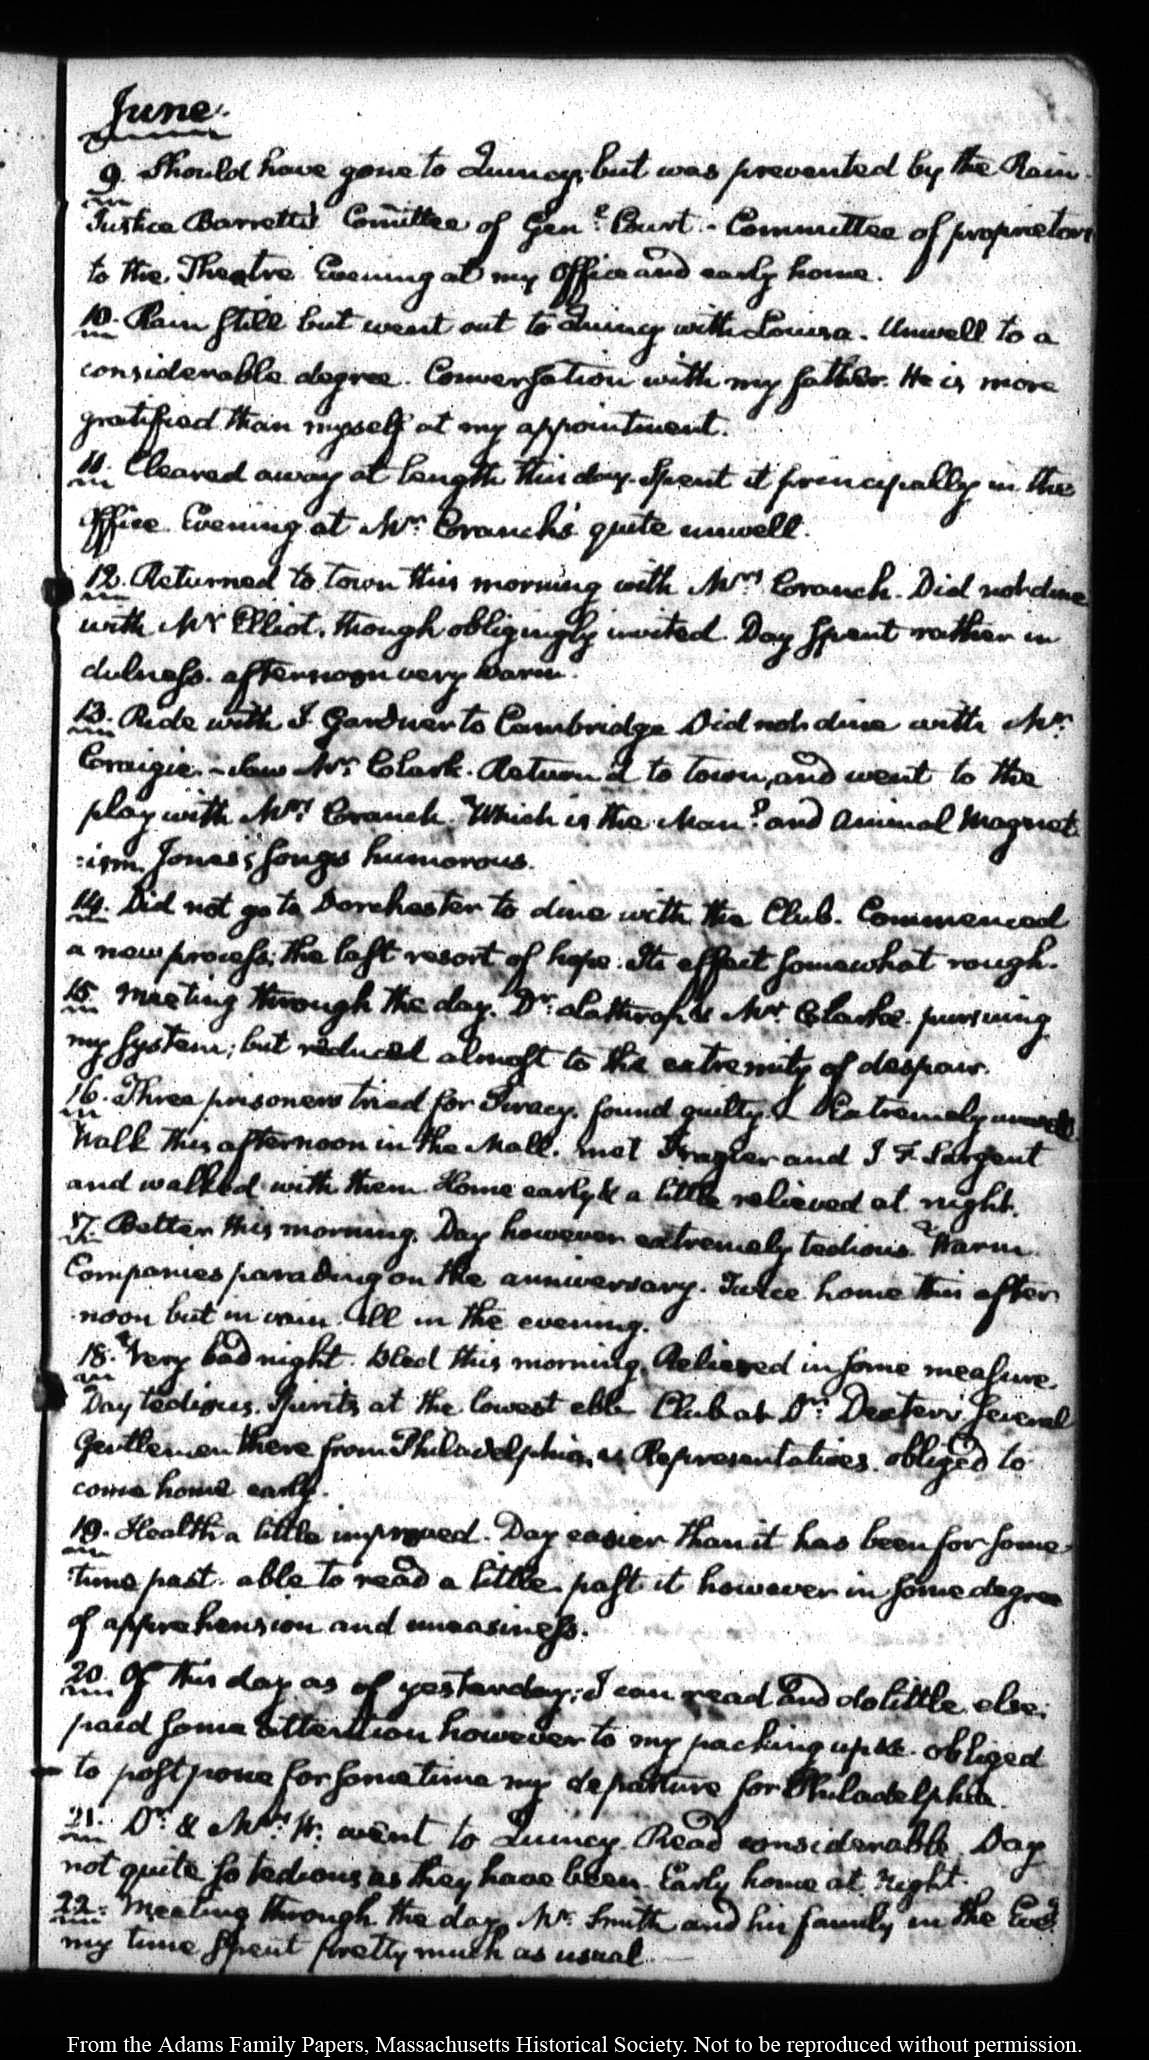 June.
9. Should have gone to Quincy, but was prevented by the Rain.
Justice Barrett's Comittee of Genl. Court. - Committee of proprietors
to the Theatre. Evening at my Office and early home.
10. Rain still but went out to Quincy with Louisa. Unwell to a
considerable degree. Conversation with my father. He is more
gratified than myself at my appointment.
11. Cleared away at length this day. Spent it principally in the
Office. Evening at Mr. Cranch's quite unwell.
12. Returned to town this morning with Mrs. Cranch. Did not dine
with Mr Elliot, though obligingly invited. Day spent rather in
dulness. afternoon very warm.
13. Ride with J. Gardner to Cambridge Did not dine with Mr.
Craigie. - Saw Mr. Clark. Return'd to town, and went to the
play with Mrs. Cranch. "Which is the Man? and Animal Magnet
:ism. Jones's songs humorous.
14. Did not go to Dorchester to dine with the Club. Commenced
a new process; the last resort of hope. Its effect somewhat rough.
15. Meeting through the day. Dr. Lathrop & Mr. Clarke. pursuing
my system; but reduced almost to the extremity of despair.
16. Three prisoners tried for Piracy. found guilty. Extremely unwell.
Walk this afternoon in the Mall. met Frazier and J F Sargent
and walked with them. Home early & a little relieved at night.
17. Better this morning. Day however extremely tedious. Warm.
Companies parading on the anniversary. Twice home this after
noon but in vain. Ill in the evening.
18. Very bad night. Bled this morning. Relieved in some measure.
Day tedious. Spirits at the lowest ebb. Club at Dr. Dexter's. several
Gentlemen there from Philadelphia, as Representatives. obliged to
come home early.
19. Health a little improved. Day easier than it has been for some
time past. able to read a little. past it however in some degree
of apprehension and uneasiness.
20. Of this day as of yesterday; I can read and do little else;
paid some attention however to my packing up &c. obliged
to postpone for some time my departure for Philadelphia.
21. Dr. & Mrs. W. went to Quincy. Read considerable. Day
not quite so tedious as they have been. Early home at Night.
22. Meeting through the day. Mr. Smith and his family in the Eveg.
my time spent pretty much as usual.
From the Adams Family Papers, Massachusetts Historical Society. Not to be reproduced without permission.